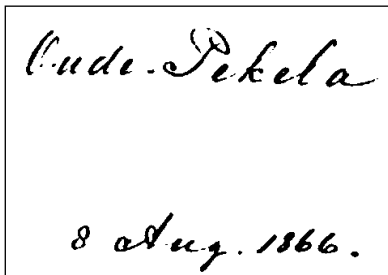 Oude-Pekela
8 Aug. 1866.